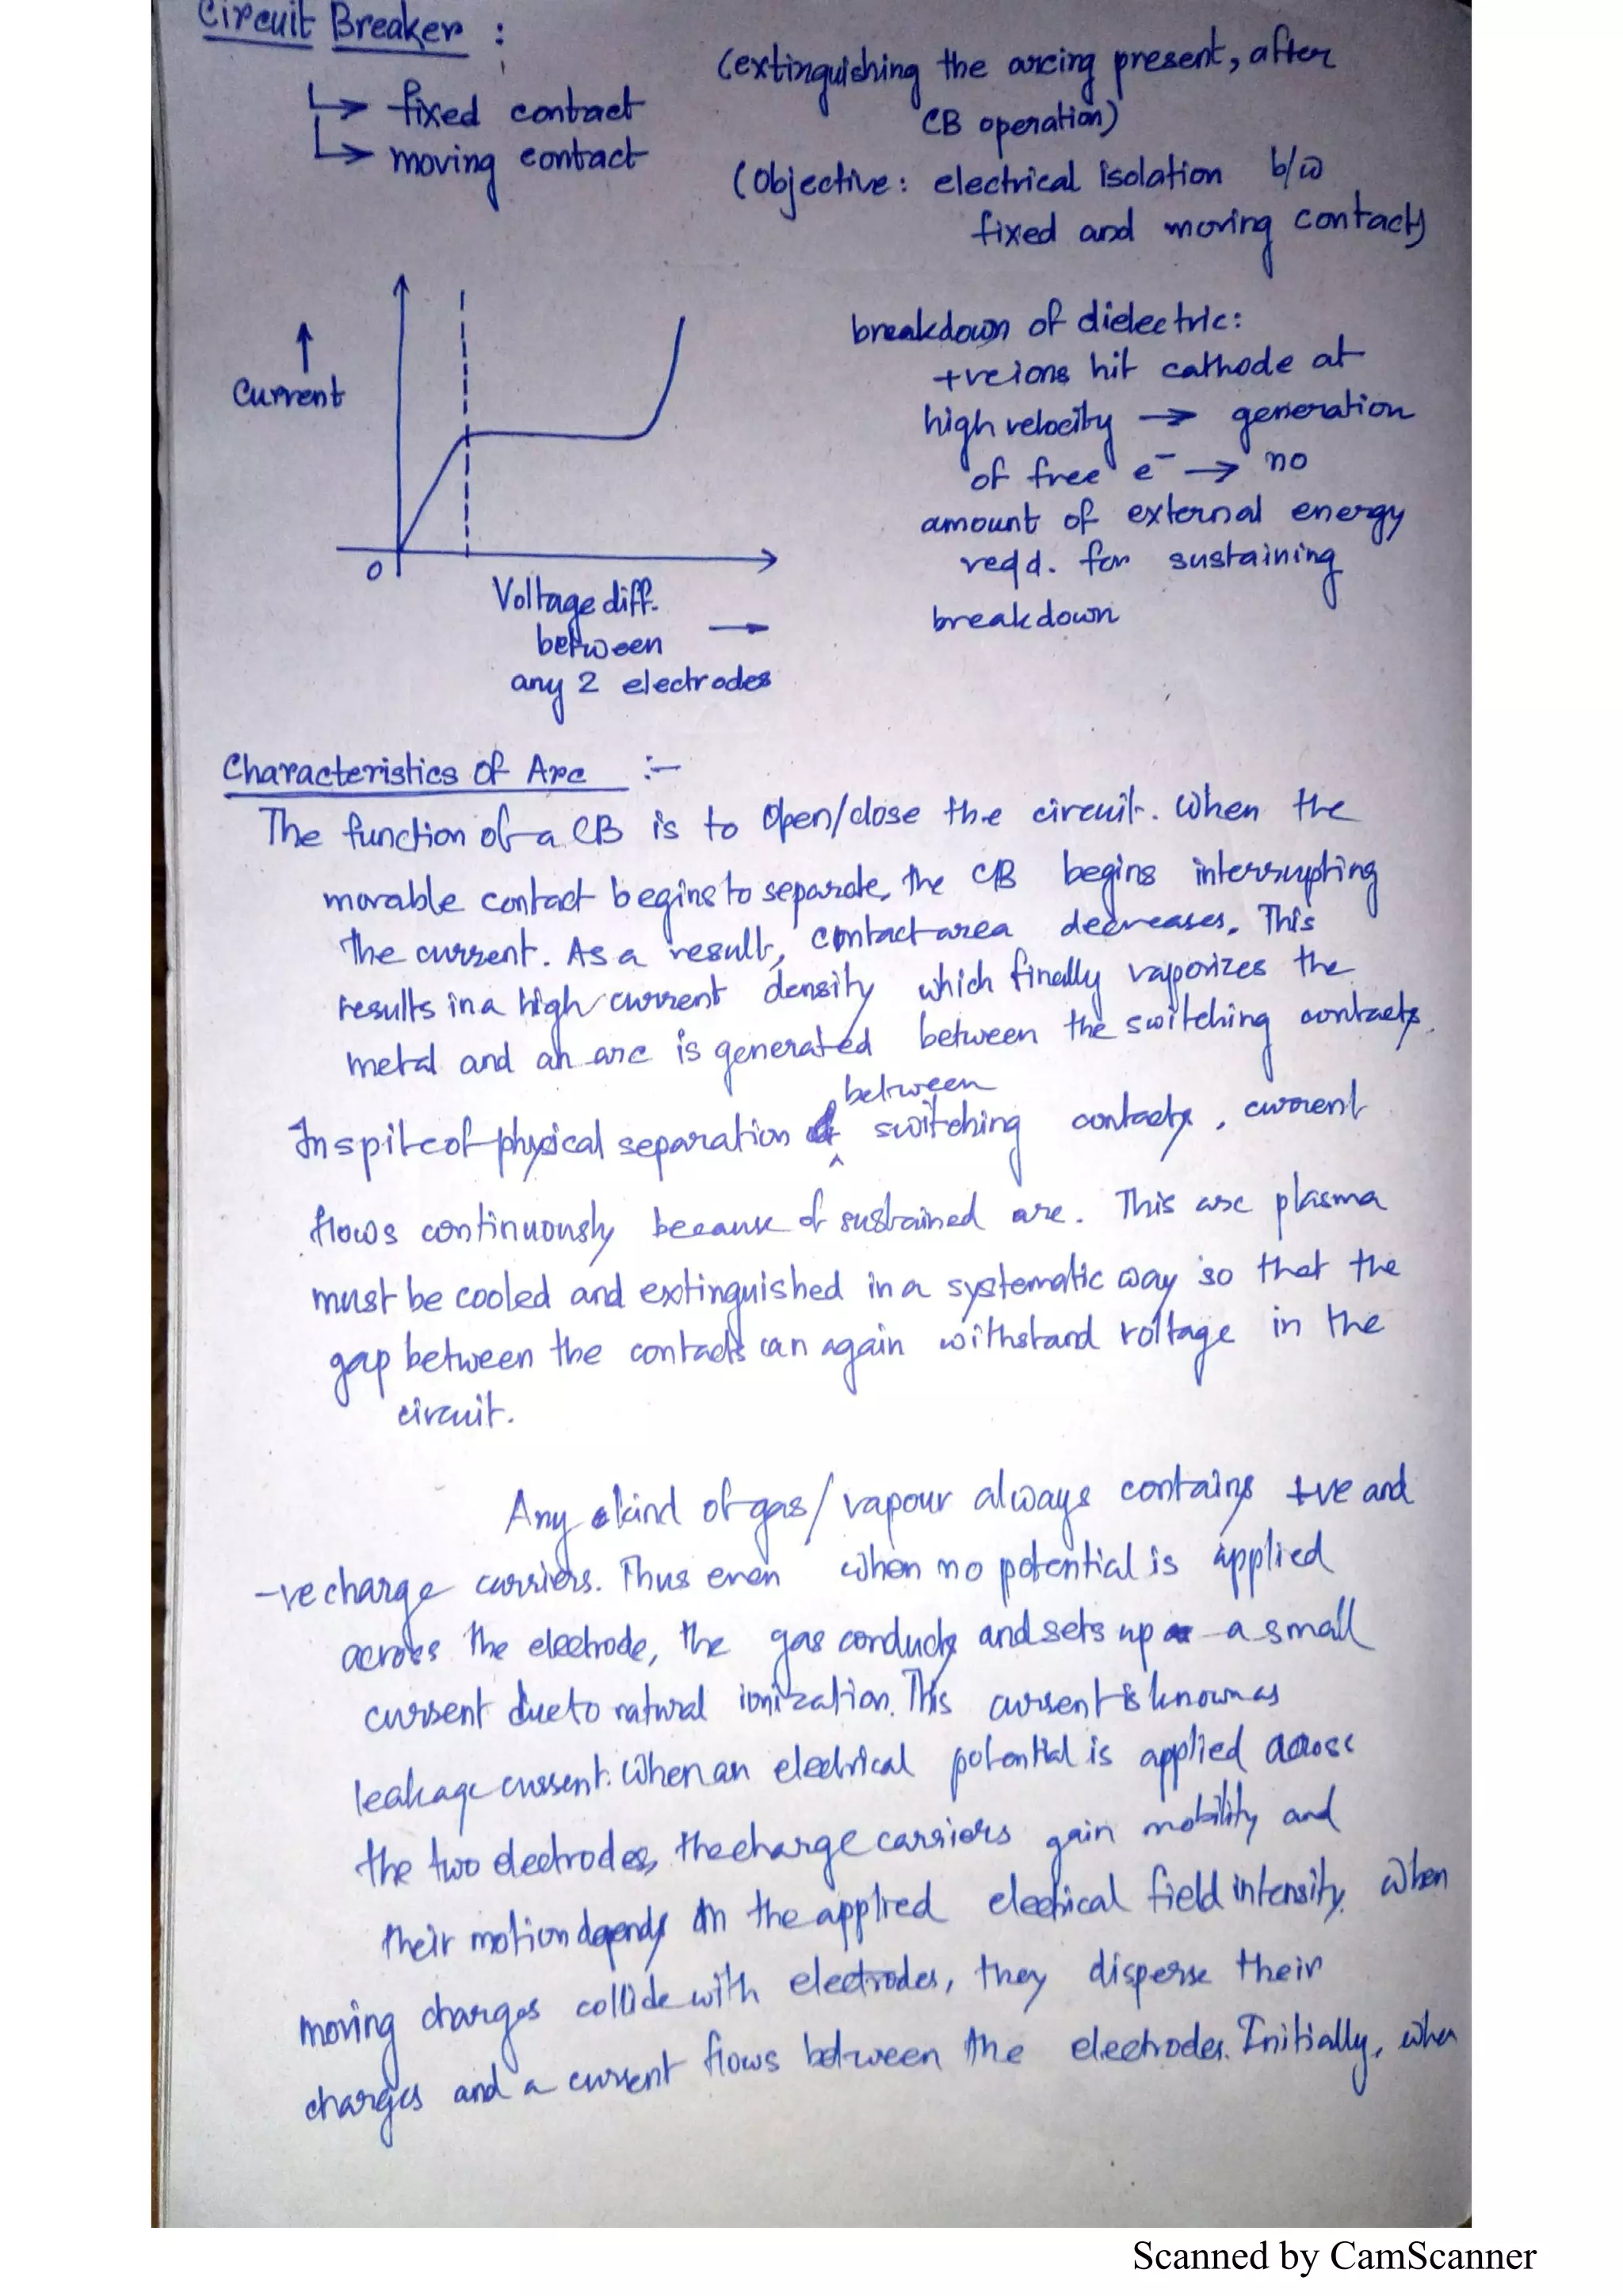 Circuit Breaker :
↳ fixed contact
↳ moving contact
(extinguishing the arcing present, after
CB operation)
(Objective: electrical isolation b/w
fixed and moving contact)
↑
Current
0
Voltage diff.
between →
any 2 electrodes
breakdown of dielectric:
+ve ions hit cathode at
high velocity → generation
of free e⁻ → no
amount of external energy
reqd. for sustaining
breakdown
Characteristics of Arc :-
The function of a CB is to Open/close the circuit. When the
movable contact begins to separate, the CB begins interrupting
the current. As a result, contact area decreases. This
results in a high current density which finally vaporizes the
metal and an arc is generated between the switching contacts.
Inspite of physical separation between switching contacts, current
flows continuously because of sustained arc. This arc plasma
must be cooled and extinguished in a systematic way so that the
gap between the contacts can again withstand voltage in the
circuit.
Any kind of gas/vapour always contains +ve and
-ve charge carriers. Thus even when no potential is applied
across the electrode, the gas conducts and sets up a small
current due to natural ionization. This current is known as
leakage current. When an electrical potential is applied across
the two electrodes, the charge carriers gain mobility and
their motion depends on the applied electrical field intensity. When
moving charges collide with electrodes, they disperse their
charges and a current flows between the electrodes. Initially, when
Scanned by CamScanner